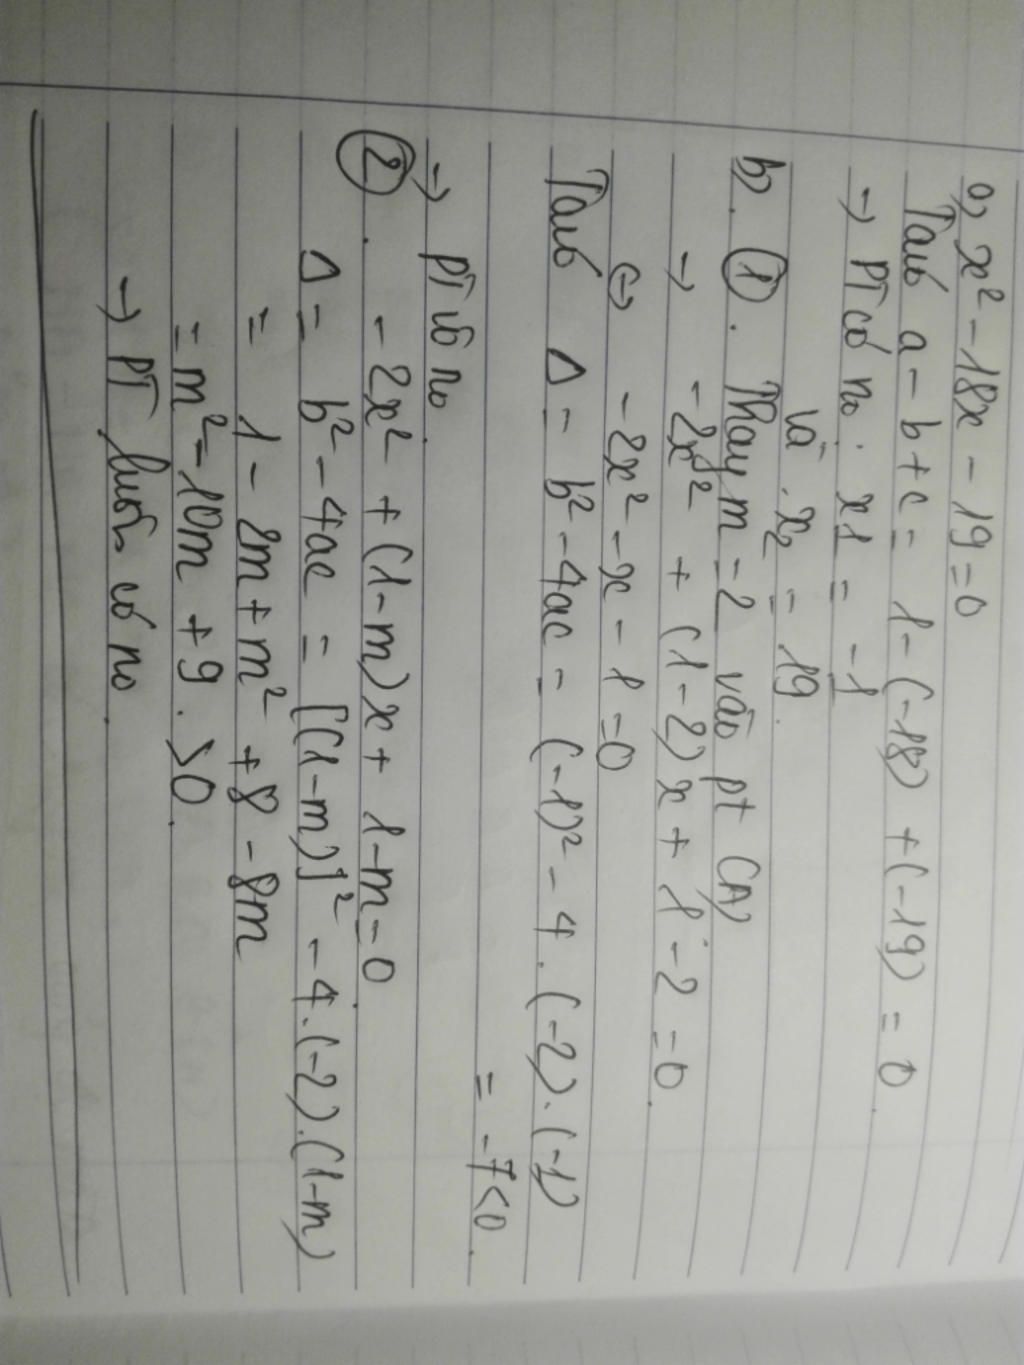 a, x² - 18x - 19 = 0
Ta có a - b + c = 1 - (-18) + (-19) = 0
→ PT có n₀: x1 = -1
và x₂ = 19.
b, ①. Thay m = 2 vào pt (A)
→ -2x² + (1-2)x + 1-2 = 0.
⇔ -2x² - x - 1 = 0
Ta có Δ = b² - 4ac = (-1)² - 4.(-2).(-1)
= -7 < 0.
→ PT vô n₀.
②. -2x² + (1-m)x + 1-m = 0
Δ = b² - 4ac = [(1-m)]² - 4.(-2).(1-m)
= 1 - 2m + m² + 8 - 8m
= m² - 10m + 9 > 0.
→ PT luôn có n₀.